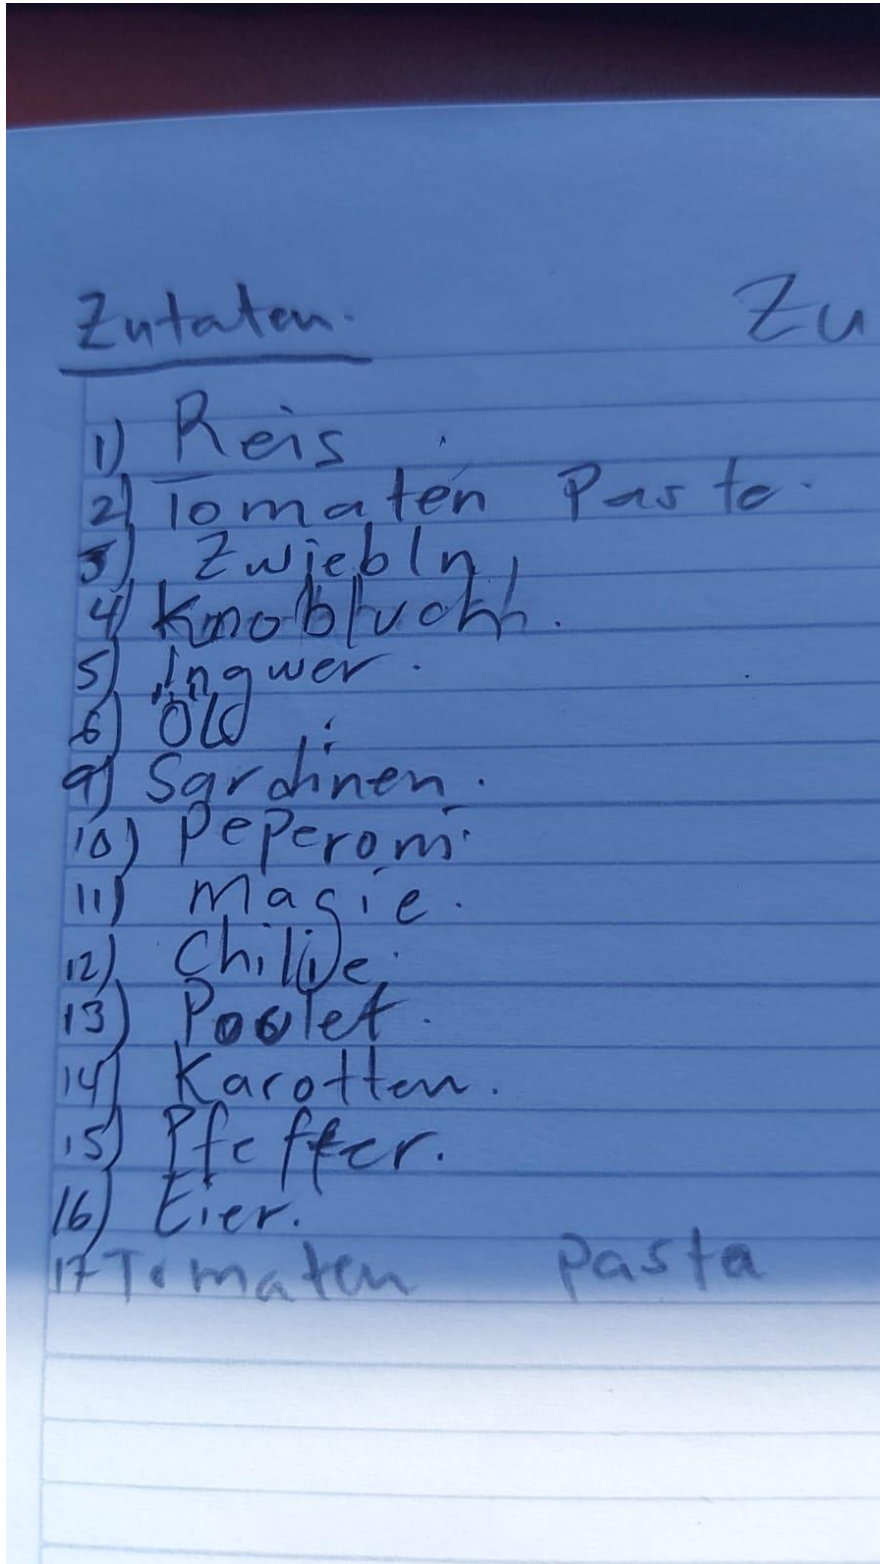 Zutaten. Zu
1) Reis.
2) Tomaten Paste.
3) Zwiebln
4) Knobluchh.
5) Ingwer.
6) Öld
9) Sardinen.
10) Peperoni
11) Magie.
12) Chillie.
13) Poulet.
14) Karotten.
15) Pfeffer.
16) Eier.
17 Tomaten pasta